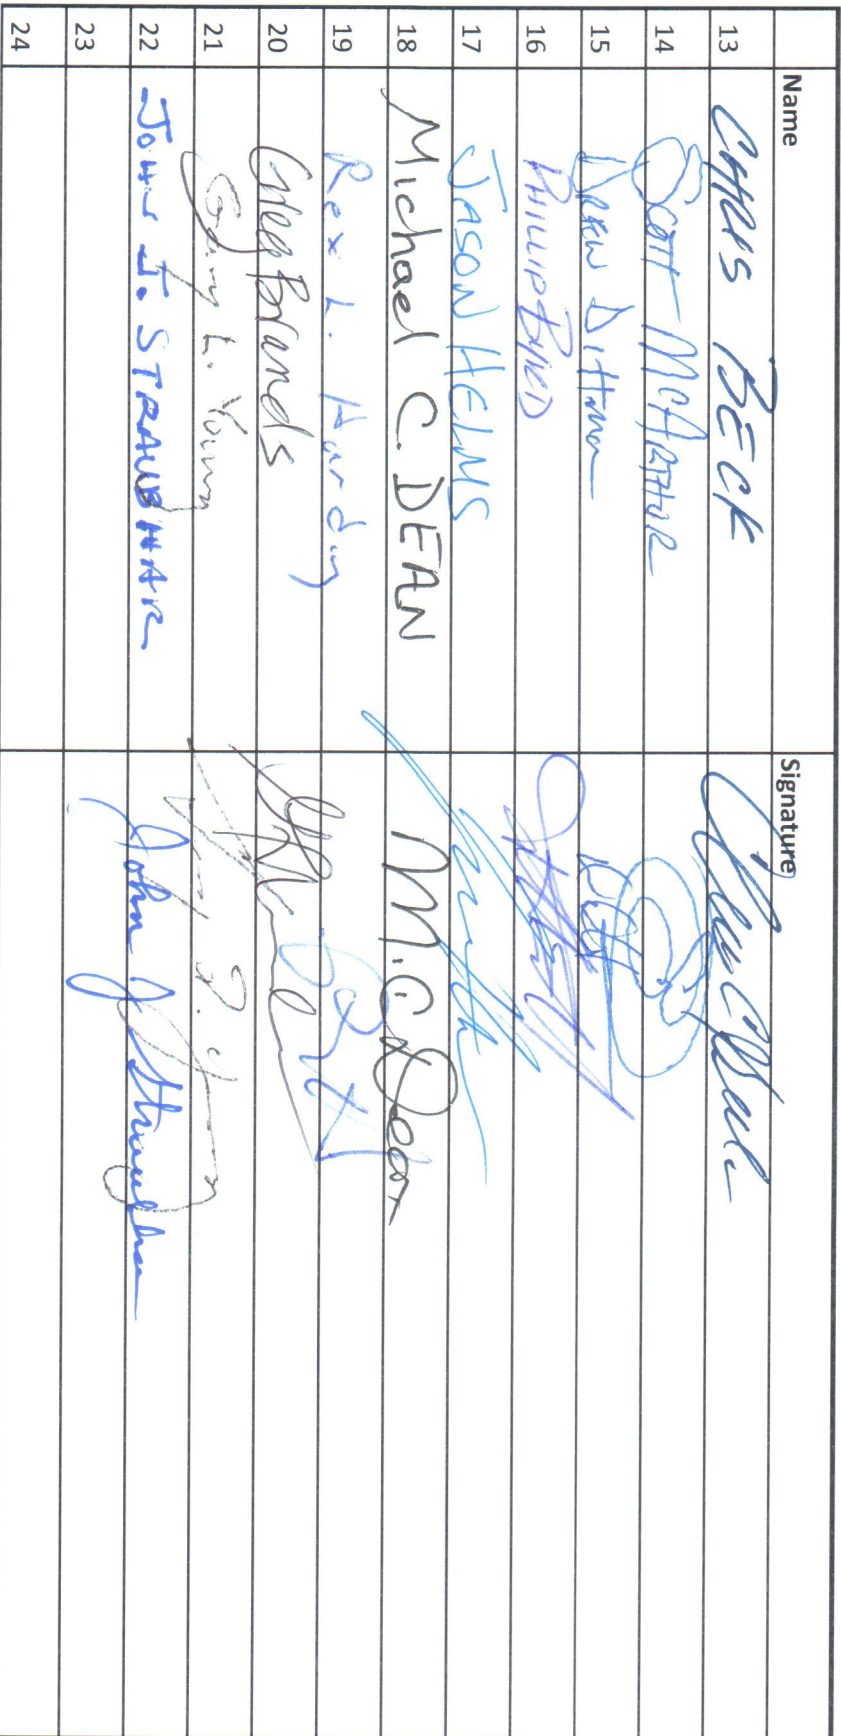 Name Signature
13 CHRIS BECK
14 SCOTT MCARTHUR
15 DREW Dittman
16 PHILLIP BYRD
17 JASON HELMS
18 Michael C. DEAN M.C. Dean
19 Rex L. Hardy
20 Greg Brands
21 Gary L. Young
22 JOHN J. STRAUBHAR John J Straubhar
23
24